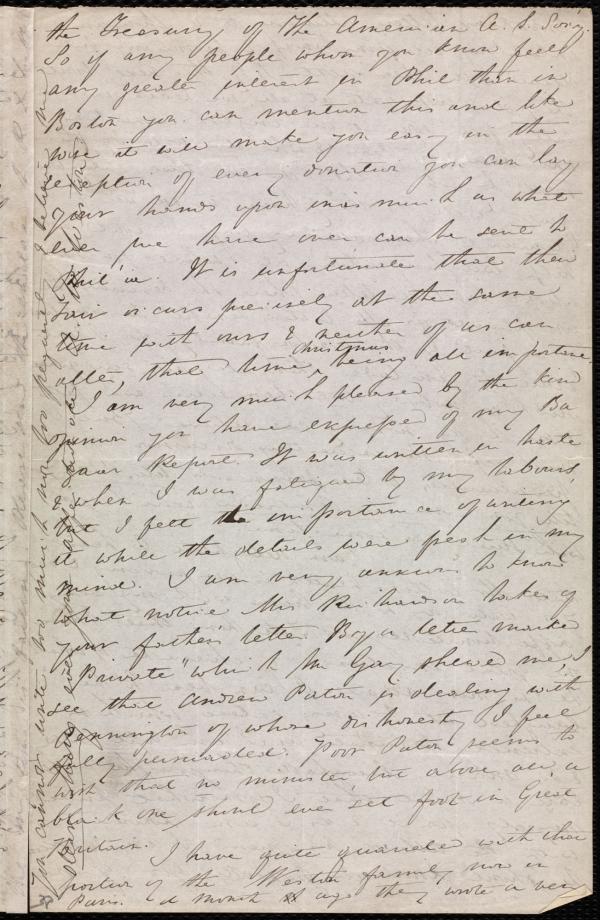 the Treasury of The American A. S. Socy.
So if any people whom you know feel
any greater interest in Phil than in
Boston you can mention this and like
wise it will make you easy in the
reception of every donation you can lay
your hands upon inasmuch as what
ever we have over can be sent to
Phil'a. It is unfortunate that their
Fair occurs precisely at the same
time with ours & neither of us can
alter, that time, Christmas being all important.
I am very much pleased by the kind
opinion you have expressed of my Ba
zaar Report. It was written in haste
& when I was fatigued by my labours,
but I felt the importance of writing
it while the details were fresh in my
mind. I am very anxious to know
what notice Mrs Richardson takes of
your father's letter. By a letter marked
"Private" which Mr Gay shewed me, I
see that Andrew Paton is dealing with
Pennington of whose dishonesty I feel
fully persuaded. Poor Paton seems to
wish that no minister, but above all, a
black one should ever set foot in Great
Britain.
I have quite quarreled with that
portion of the Weston family now in
Paris. A month ago they wrote a very
You cannot write too much nor too frequently I believe